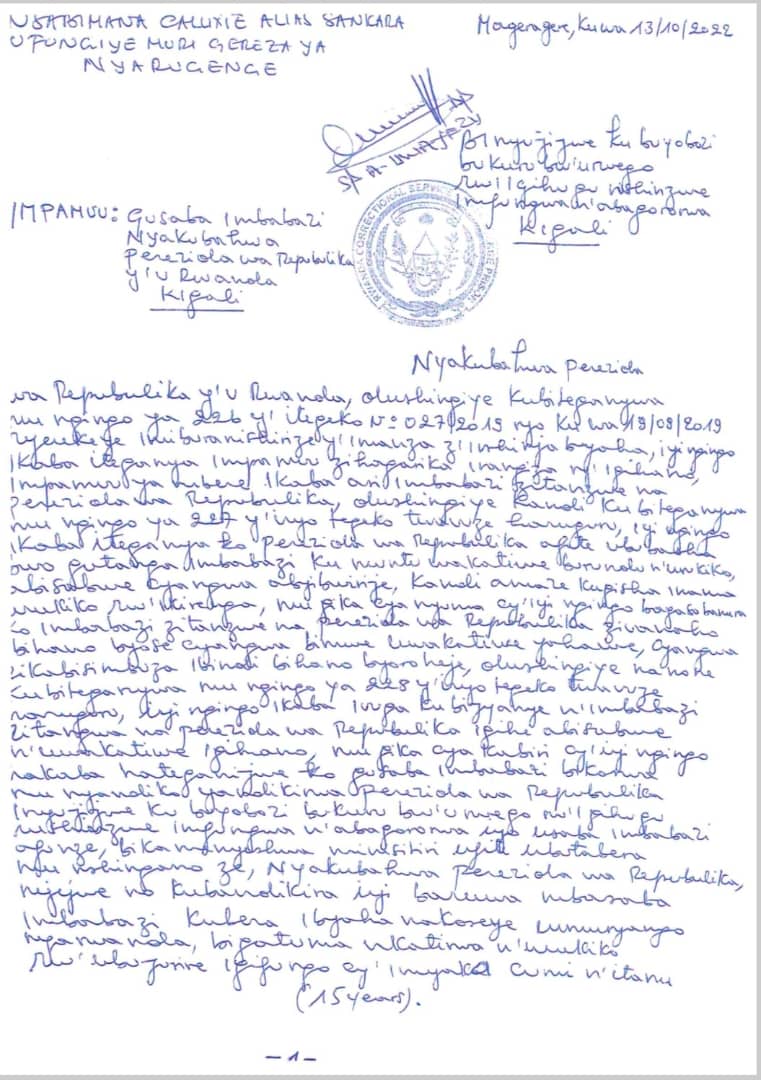 NSABIMANA CALLIXTE ALIAS SANKARA
UFUNGIYE MURI GEREZA YA
NYARUGENGE
Mageragere, Kuwa 13/10/2022
Binyujijwe ku buyobozi
bukuru bw'urwego
rw'Igihugu rushinzwe
imfungwa n'abagororwa
Kigali
RWANDA CORRECTIONAL SERVICE
IMPAMVU: Gusaba Imbabazi
Nyakubahwa
Perezida wa Republika
y'u Rwanda
Kigali
Nyakubahwa Perezida
wa Republika y'u Rwanda, dushingiye kubiteganywa
mu ngingo ya 226 y'itegeko No 027/2019 ryo kuwa 19/09/2019
ryerekeye imiburanishirize y'imanza z'inshinjabyaha, iyi ngingo
ikaba iteganya impamvu zihagarika irangiza ry'igihano,
impamvu ya mbere ikaba ari imbabazi zitanzwe na
Perezida wa Republika, dushingiye kandi ku biteganywa
mu ngingo ya 227 y'iryo tegeko tuvuze haruguru, iyi ngingo
ikaba iteganya ko Perezida wa Republika afite ububasha
bwo gutanga imbabazi ku muntu wakatiwe burundu n'urukiko,
abisabwe cyangwa abyibwirije, kandi amaze kugisha inama
urukiko rw'ikirenga, mu gika cya nyuma cy'iyi ngingo bagasobanura
ko imbabazi zitanzwe na perezida wa Republika zivanaho
bihano byose cyangwa bimwe uwakatiwe yahawe, cyangwa
zikabisimbuza ibindi bihano byoroheje, dushingiye na none
kubiteganywa mu ngingo ya 228 y'iryo tegeko tuvuze
haruguru, iyi ngingo ikaba ivuga ku bijyanye n'imbabazi
zitangwa na perezida wa Republika igihe abisabwe
n'uwakatiwe igihano, mu gika cya kabiri cy'iyi ngingo
hakaba hateganijwe ko gusaba imbabazi bikorwa
mu nyandiko yandikirwa perezida wa Republika
inyujijwe ku buyobozi bukuru bw'urwego rw'Igihugu
rushinzwe imfungwa n'abagororwa iyo usaba imbabazi
afunze, bikamenyeshwa minisitiri ufite ubutabera
mu nshingano ze, Nyakubahwa Perezida wa Republika,
nejejwe no kubandikira iyi baruwa mbasaba
imbabazi kubera ibyaha nakoreye umuryango
nyarwanda, bigatuma nkatirwa n'urukiko
rw'ubujurire igifungo cy'imyaka cumi n'itanu
(15 years).
-1-